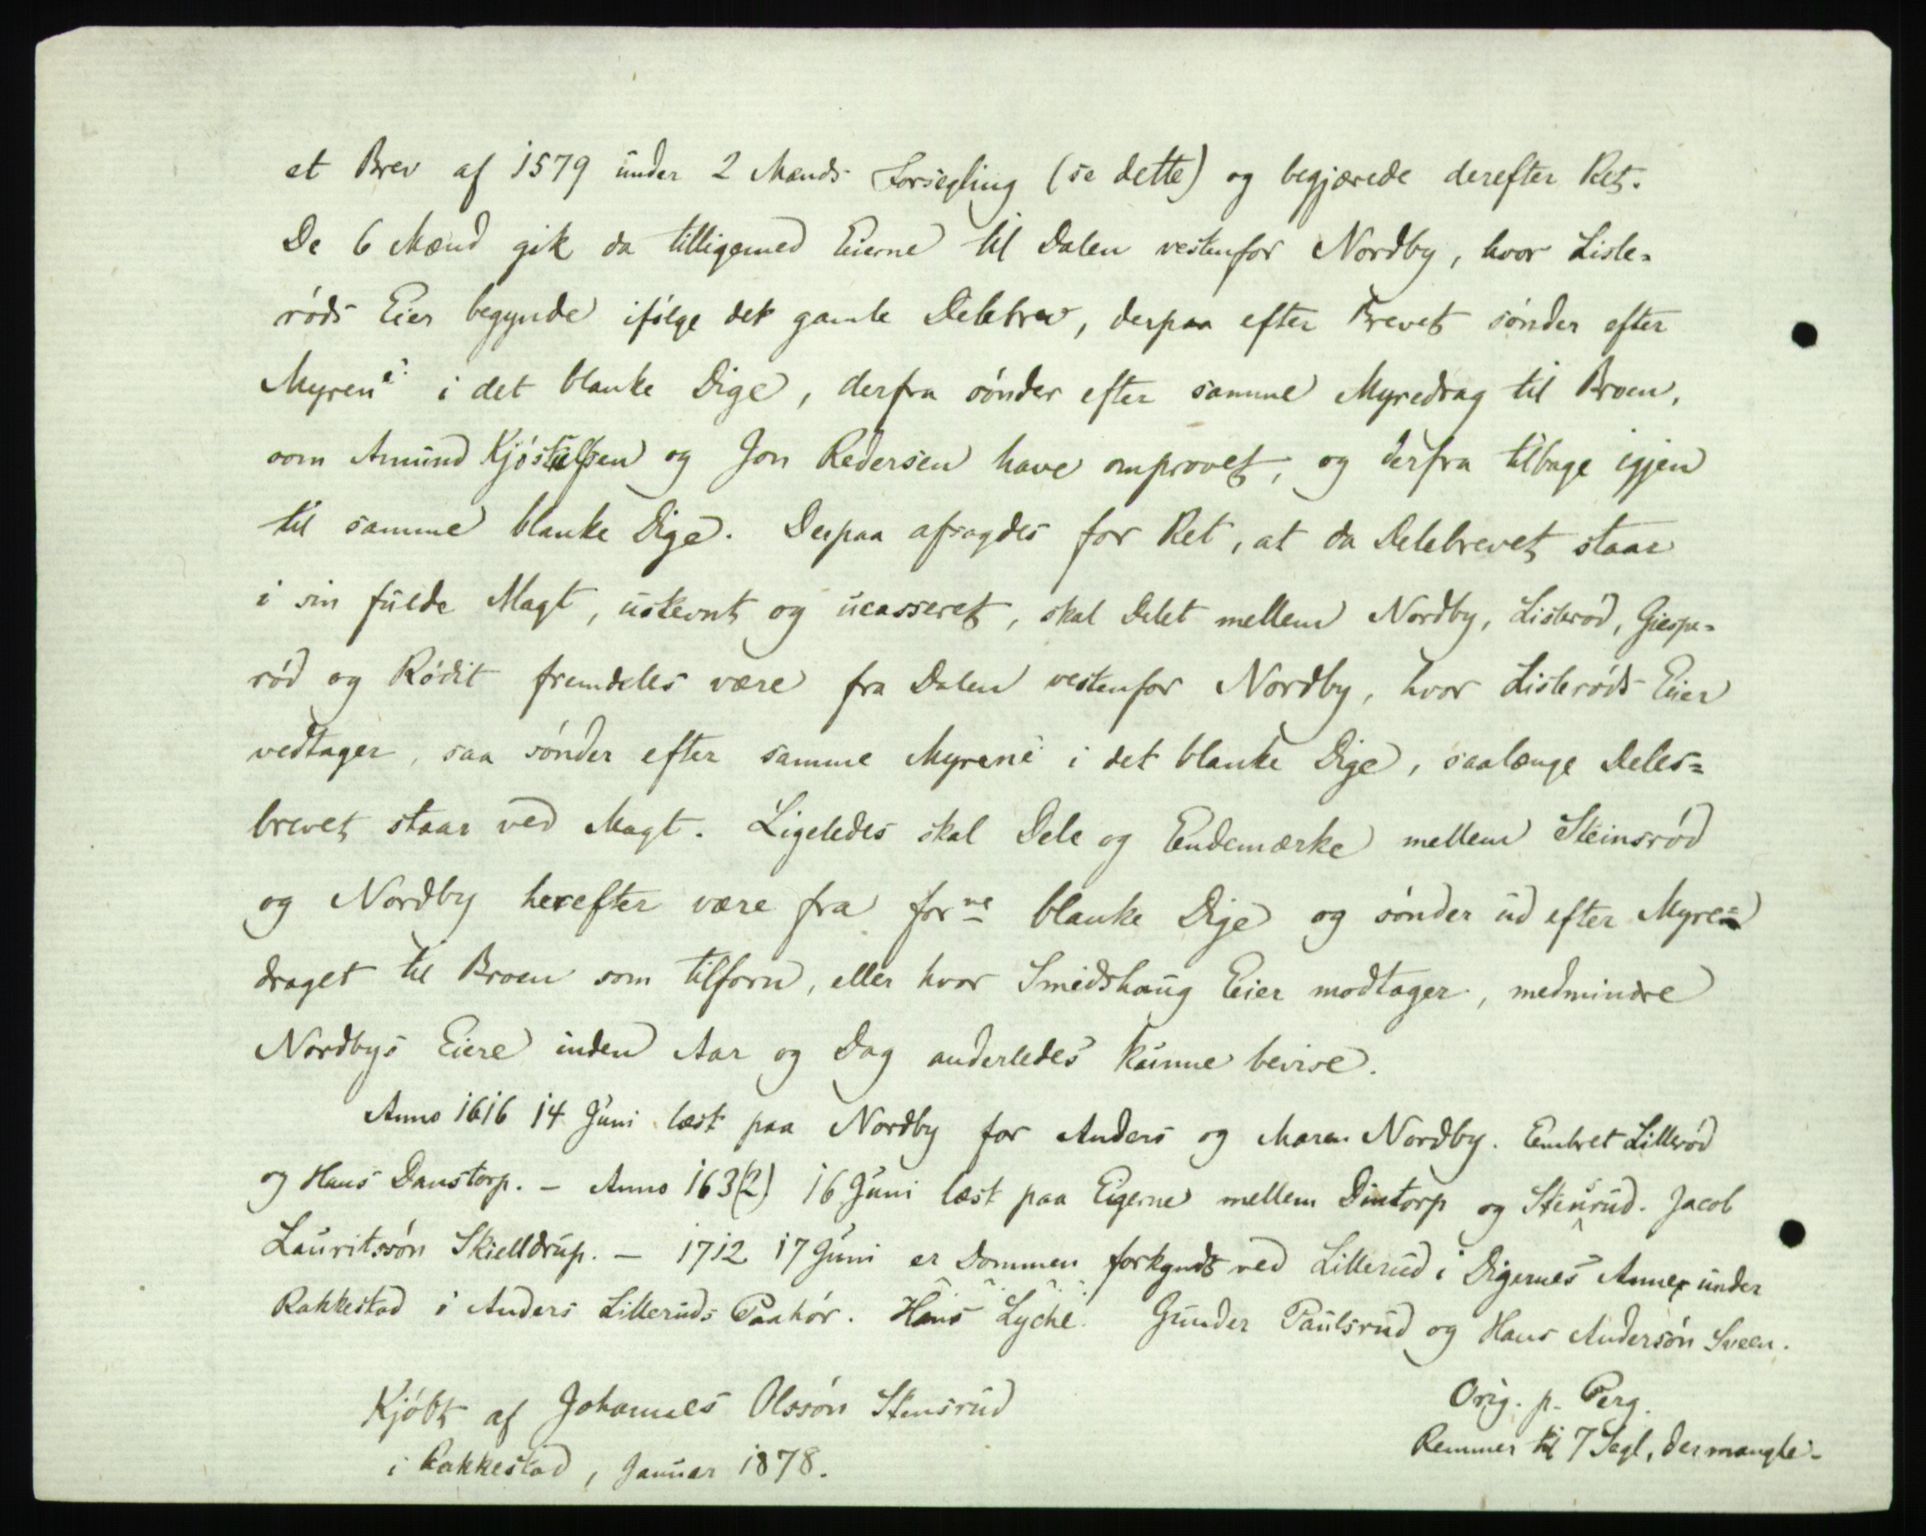 et Brev af 1579 under 2 Mænds Forsegling (se dette) og begjærede derefter Ret.
De 6 Mænd gik da tilligemed Eierne til Dalen vestenfor Nordby, hvor Liste=
røds Eier begynde ifølge det gamle Delebrev, derpaa efter Brevet sønder efter
Myrene i det blanke Dige, derfra sønder efter samme Myredrag til Broen,
som Amund Kjøstelsen og Jon Redersen have omprovet, og derfra tilbage igjen
til samme blanke Dige. Derpaa afsagdes for Ret, at da Delebrevet staar
i sin fulde Magt, uskevnt og ucasseret, skal Delet mellem Nordby, Listerød, Giespe=
rød og Rødit fremdeles være fra Dalen vestenfor Nordby, hvor Listerøds Eier
vedtager, saa sønder efter samme Myrene i det blanke Dige, saalænge Deles=
brevet staar ved Magt. Ligeledes skal Dele og Endemærke mellem Steinsrød
og Nordby herefter være fra forne blanke Dige og sønder ud efter Myre=
draget til Broen som tilforn, eller hvor Smidshaug Eier modtager, medmindre
Nordbys Eiere inden Aar og Dag anderledes kunne bevise.
Anno 1616 14 Juni læst paa Nordby for Anders og Maren Nordby. Embret Lillerød
og Hans Danstorp. – Anno 163(2) 16 Juni læst paa Eigerne mellem Dintorp og Stensrud. Jacob
Lauritssøn Skielldrup. – 1712 17 Juni er Dommen forkyndt ved Lillerud i Digernes Annex under
Rakkestad i Anders Lilleruds Paahør. Hans Lyche. Gunder Paulsrud og Hans Andersøn Sveen.
Kjøbt af Johannes Olssøn Stensrud
i Rakkestad, Januar 1878.
Orig. p. Perg.
Remmer til 7 Segl, der mangle.